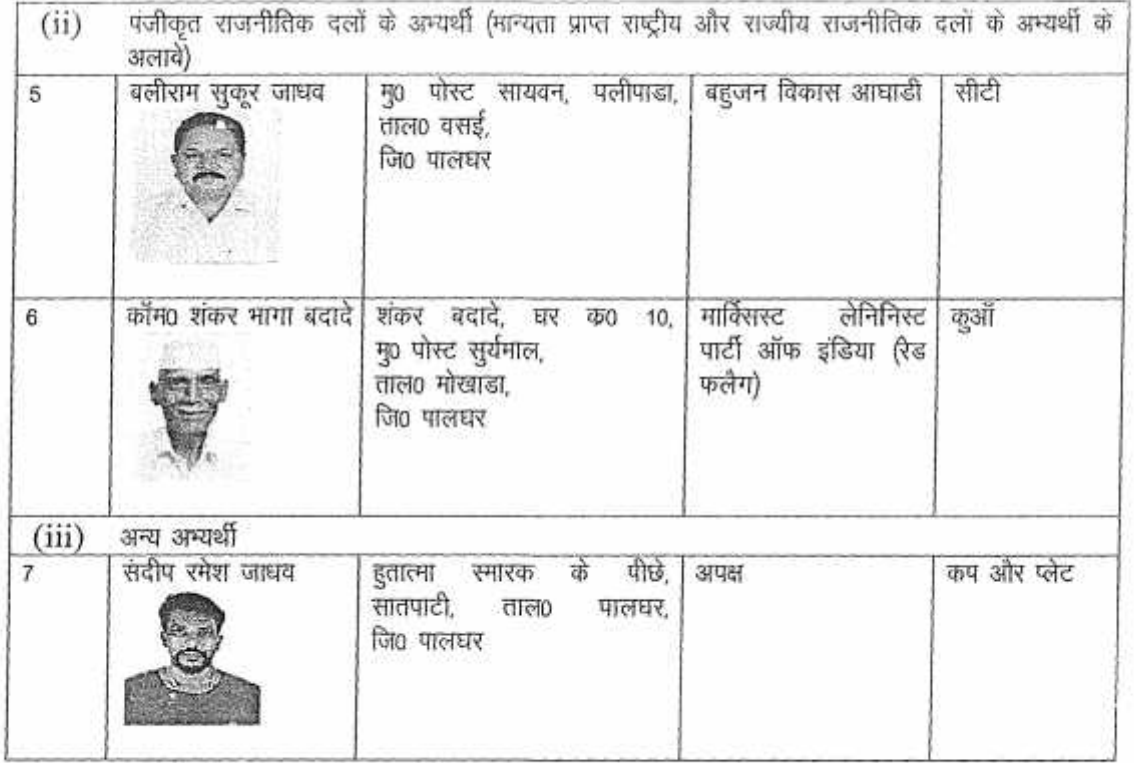 (ii) पंजीकृत राजनीतिक दलों के अभ्यर्थी (मान्यता प्राप्त राष्ट्रीय और राज्यीय राजनीतिक दलों के अभ्यर्थी के
अलावे)
5
बलीराम सुकूर जाधव
मु0 पोस्ट सायवन, पलीपाडा,
ताल0 वसई,
जि0 पालघर
बहुजन विकास आघाडी
सीटी
6
कॉम0 शंकर भागा बदादे
शंकर बदादे, घर क्र0 10,
मु0 पोस्ट सुर्यमाल,
ताल0 मोखाडा,
जि0 पालघर
मार्क्सिस्ट लेनिनिस्ट
पार्टी ऑफ इंडिया (रेड
फलैग)
कुऑ
(iii) अन्य अभ्यर्थी
7
संदीप रमेश जाधव
हुतात्मा स्मारक के पीछे,
सातपाटी, ताल0 पालघर,
जि0 पालघर
अपक्ष
कप और प्लेट